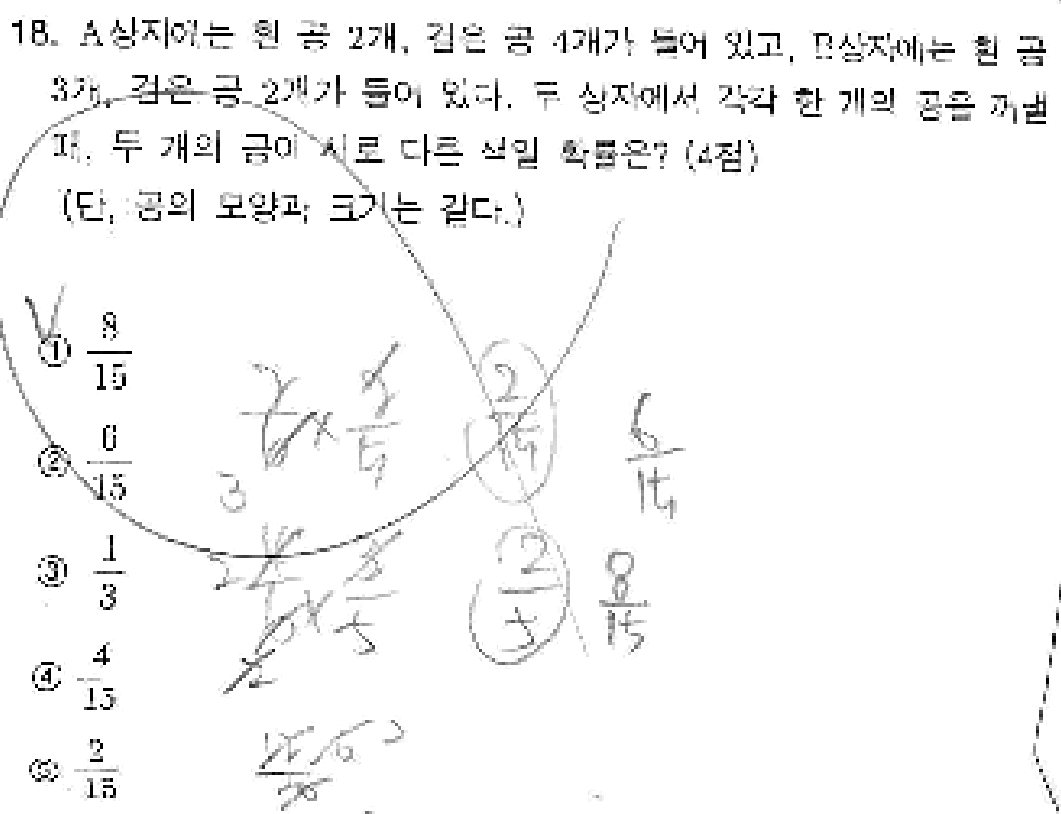 18. A상자에는 흰 공 2개, 검은 공 4개가 들어 있고, B상자에는 흰 공
3개, 검은 공 2개가 들어 있다. 두 상자에서 각각 한 개의 공을 꺼낼
때, 두 개의 공이 서로 다른 색일 확률은? (4점)
(단, 공의 모양과 크기는 같다.)
① 8/15
② 6/15
③ 1/3
④ 4/15
⑤ 2/15
2/6 × 2/5 2/15 6/15
3
2 4/6 × 3/5 2/5 8/15
2